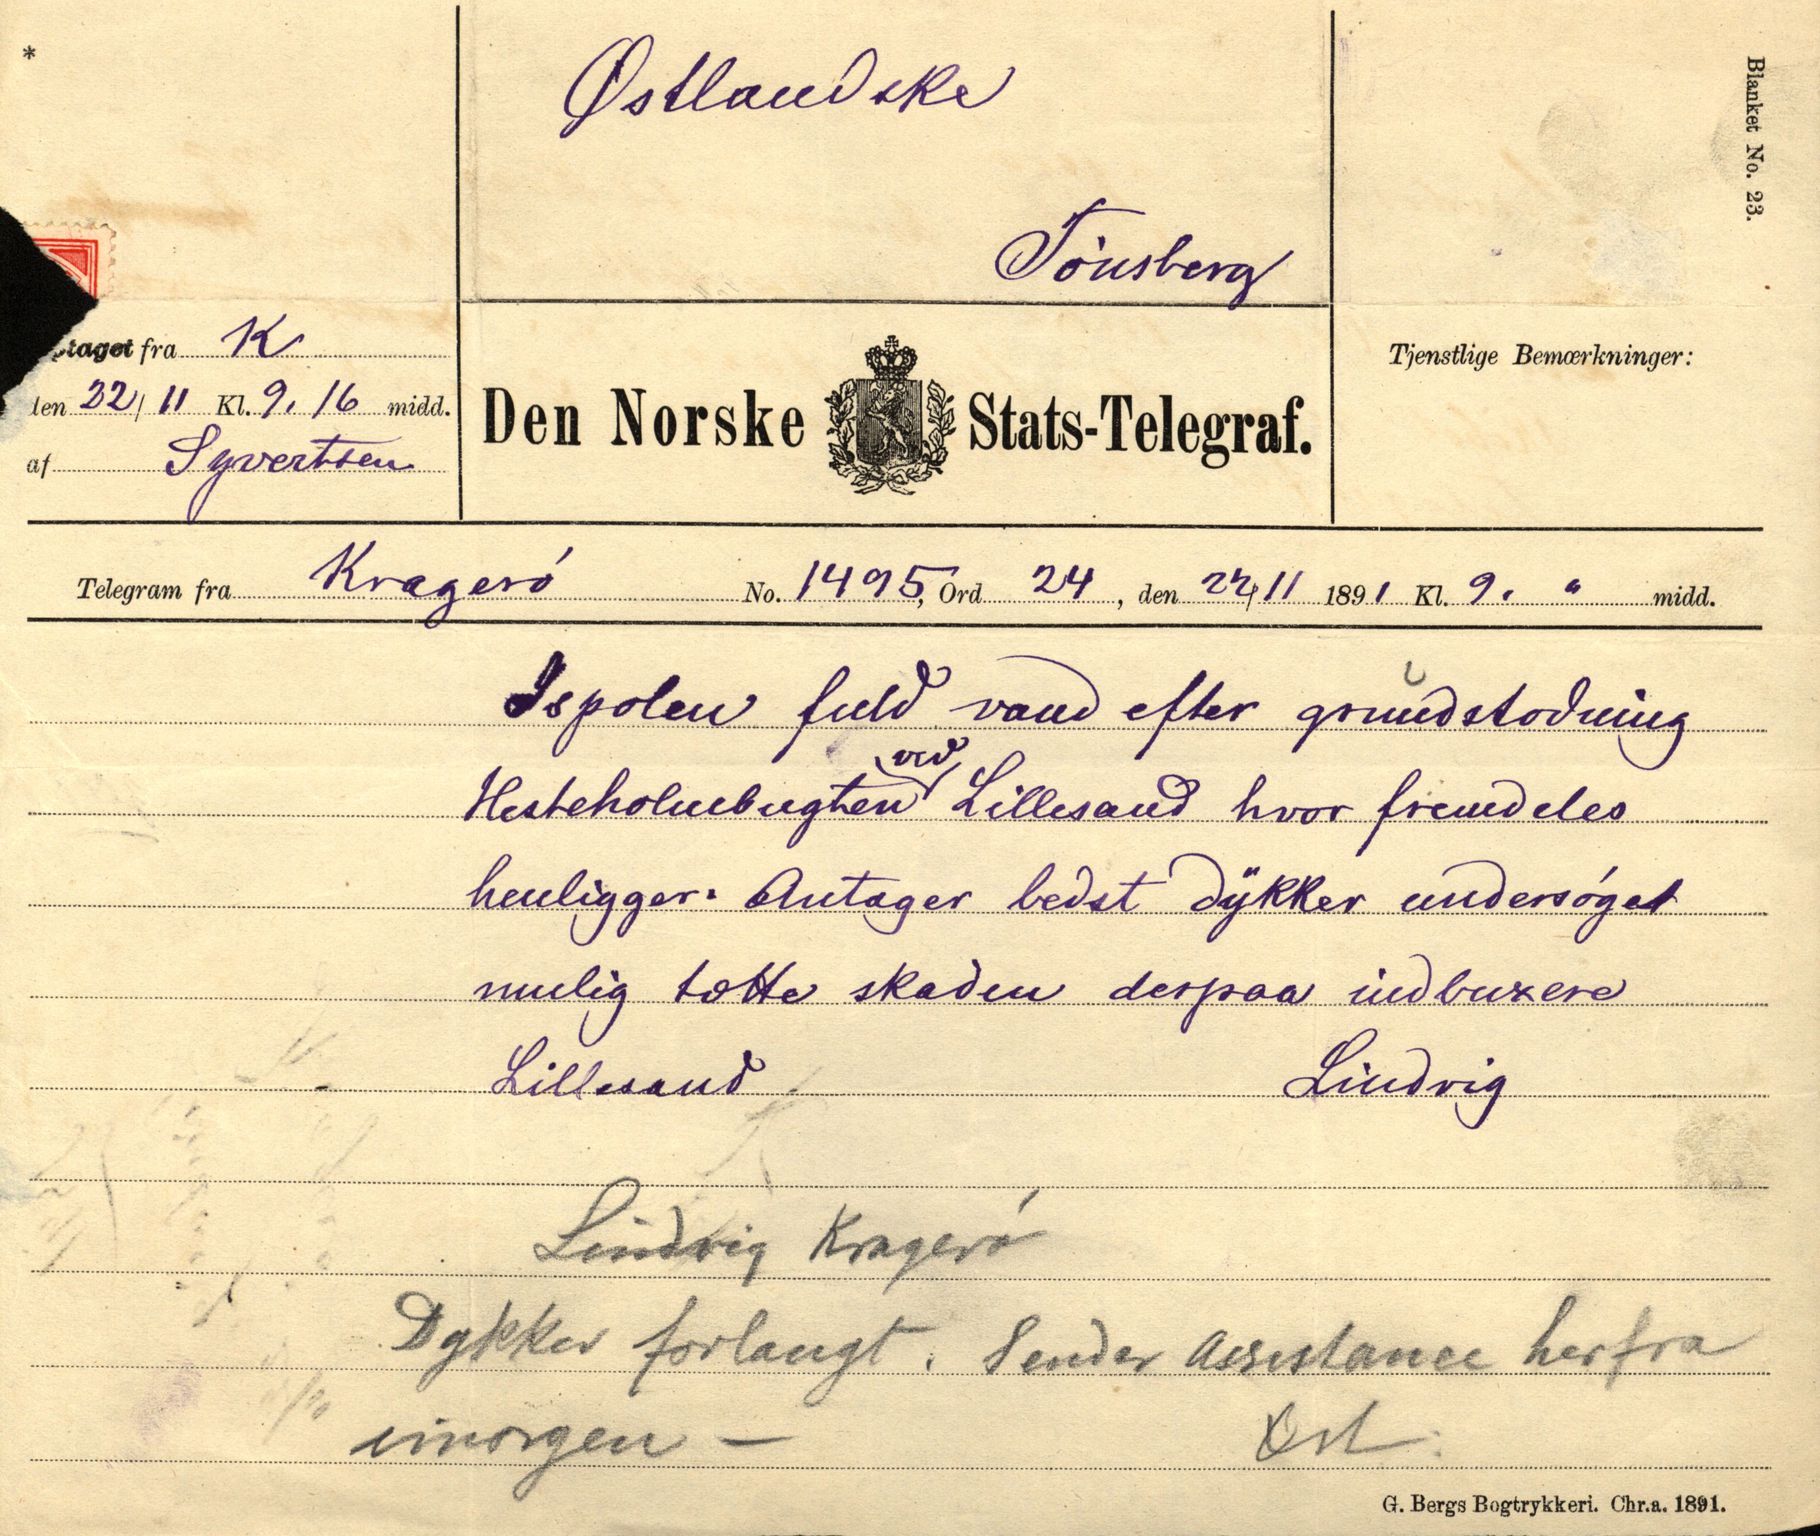 *
Østlandske
Tönsberg
Blanket No. 23.
taget fra K
den 22/11 Kl. 9.16 midd.
af Syvertsen
Den Norske Stats-Telegraf.
Tjenstlige Bemærkninger:
Telegram fra Kragerö No. 1495, Ord 24, den 22/11 1891 Kl. 9. " midd.
Ispolen fuld vand efter grundstödning
Hesteholmbugten ved Lillesand hvor fremdeles
henligger. Antager bedst dykker undersöget
mulig tætte skaden derpaa indbuxere
Lillesand Lindvig
Lindvig Kragerö
Dykker forlangt. Sender Assistance herfra
imorgen — Øst.
G. Bergs Bogtrykkeri. Chr.a. 1891.